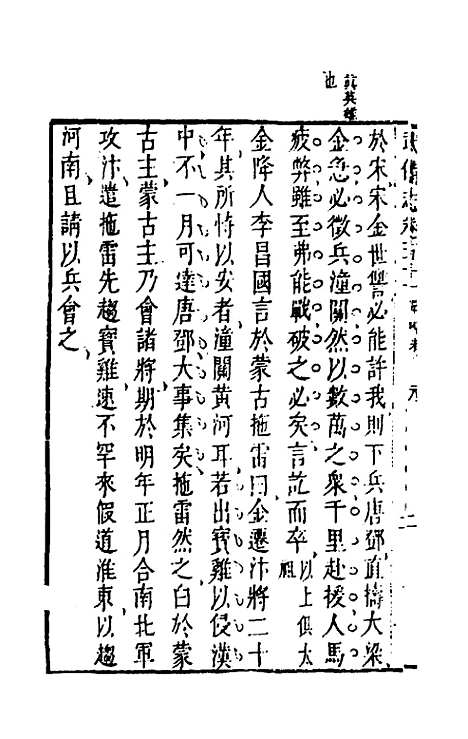 真英雄
也
武備志卷三十
元
於宋宋金世讐必能許我則下兵唐鄧直擣大梁
金急必徵兵潼關然以數萬之衆千里赴援人馬
疲弊雖至弗能戰破之必矣言訖而卒以上俱太
祖
金降人李昌國言於蒙古拖雷曰金遷汴將二十
年其所恃以安者潼關黃河耳若出寶雞以侵漢
中不一月可達唐鄧大事集矣拖雷然之白於蒙
古主蒙古主乃會諸將期於明年正月合南北軍
攻汴遣拖雷先趨寶雞速不罕來假道淮東以趨
河南且請以兵會之